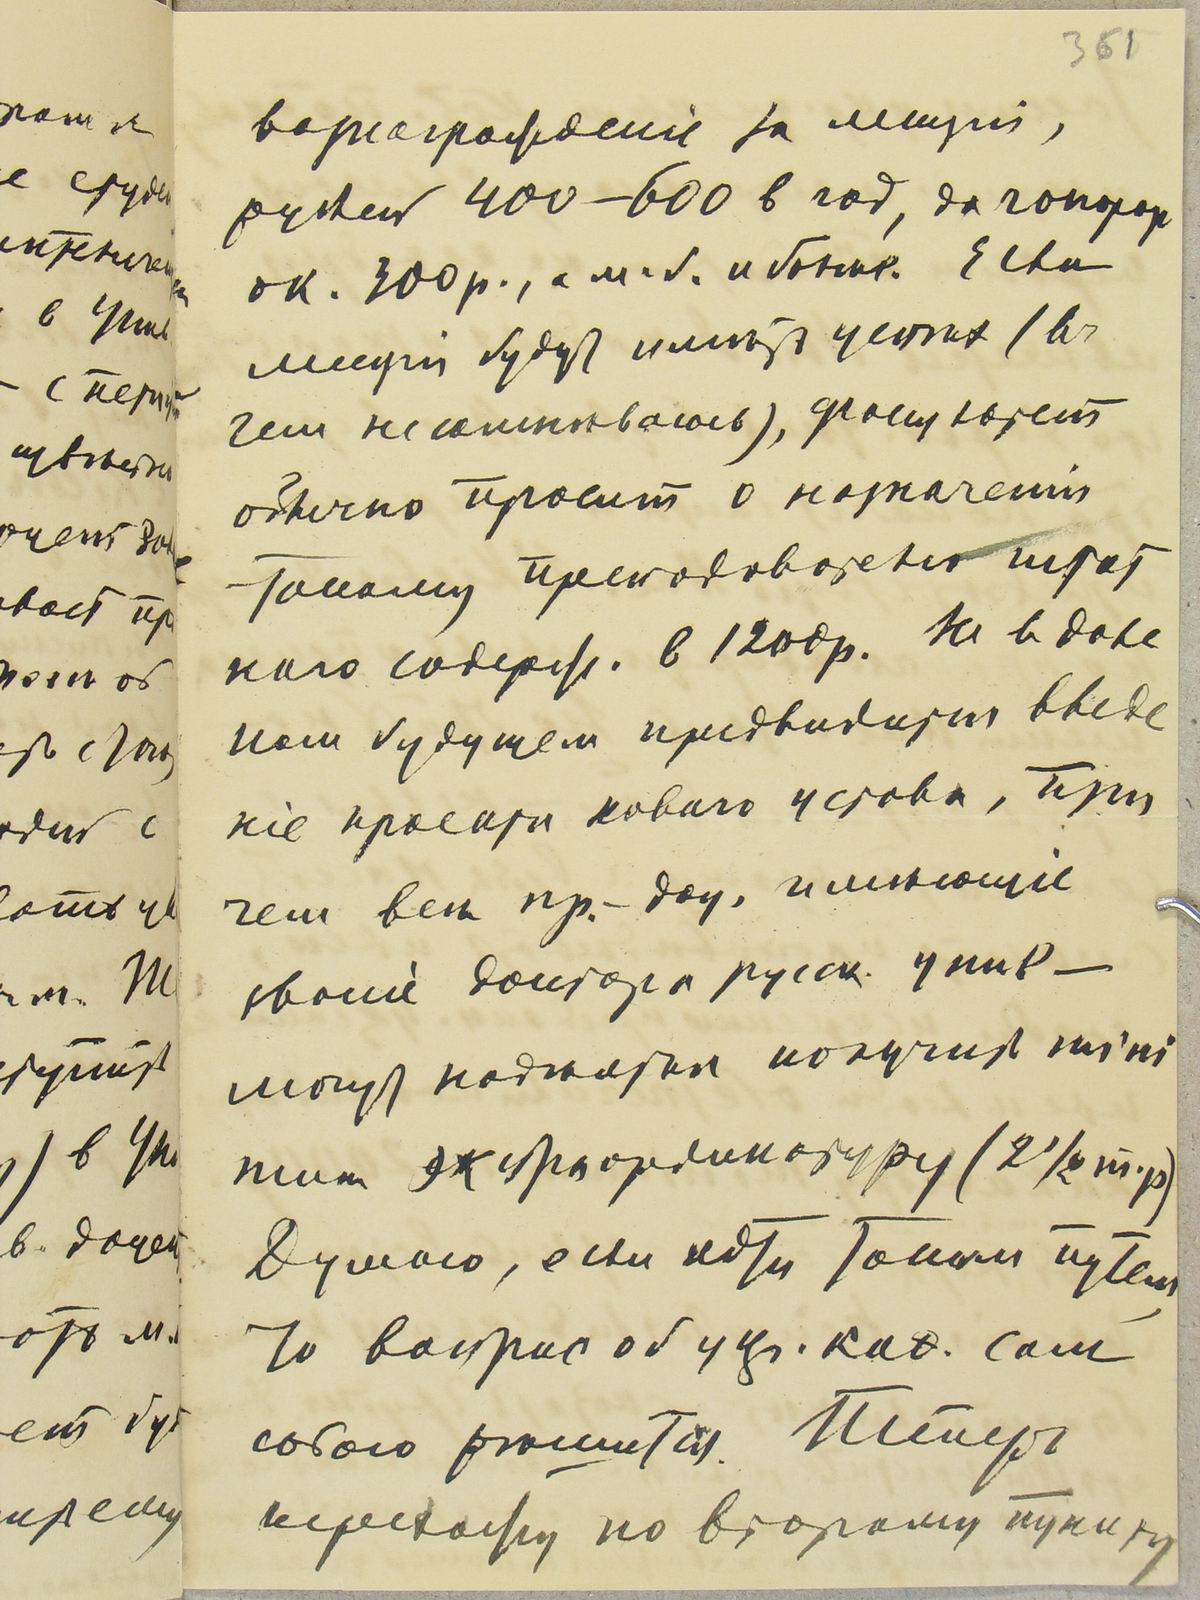 361
вознагражденіе за лекціи,
рублей 400–600 в год, да гонорар
ок. 300 р., а м. б. и больше. Если
лекціи будут имѣть успѣх (в
чем не сомнѣваюсь), факультет
обычно просит о назначеніи
такому преподавателю штат
наго содерж. в 1200 р. Не в дале
ком будущем предвидится введе
ніе проекта новаго устава, при
чем всѣ пр.-доц. имѣющіе
званіе доктора русск. унив –
могут надѣяться получить mini
mum экстраординатуру (2 1/2 т. р)
Думаю, если идти таким путем,
то вопрос об укр. каѳ. сам
собою рѣшится. Теперь
перехожу по второму пункту
в
с пер
доцен